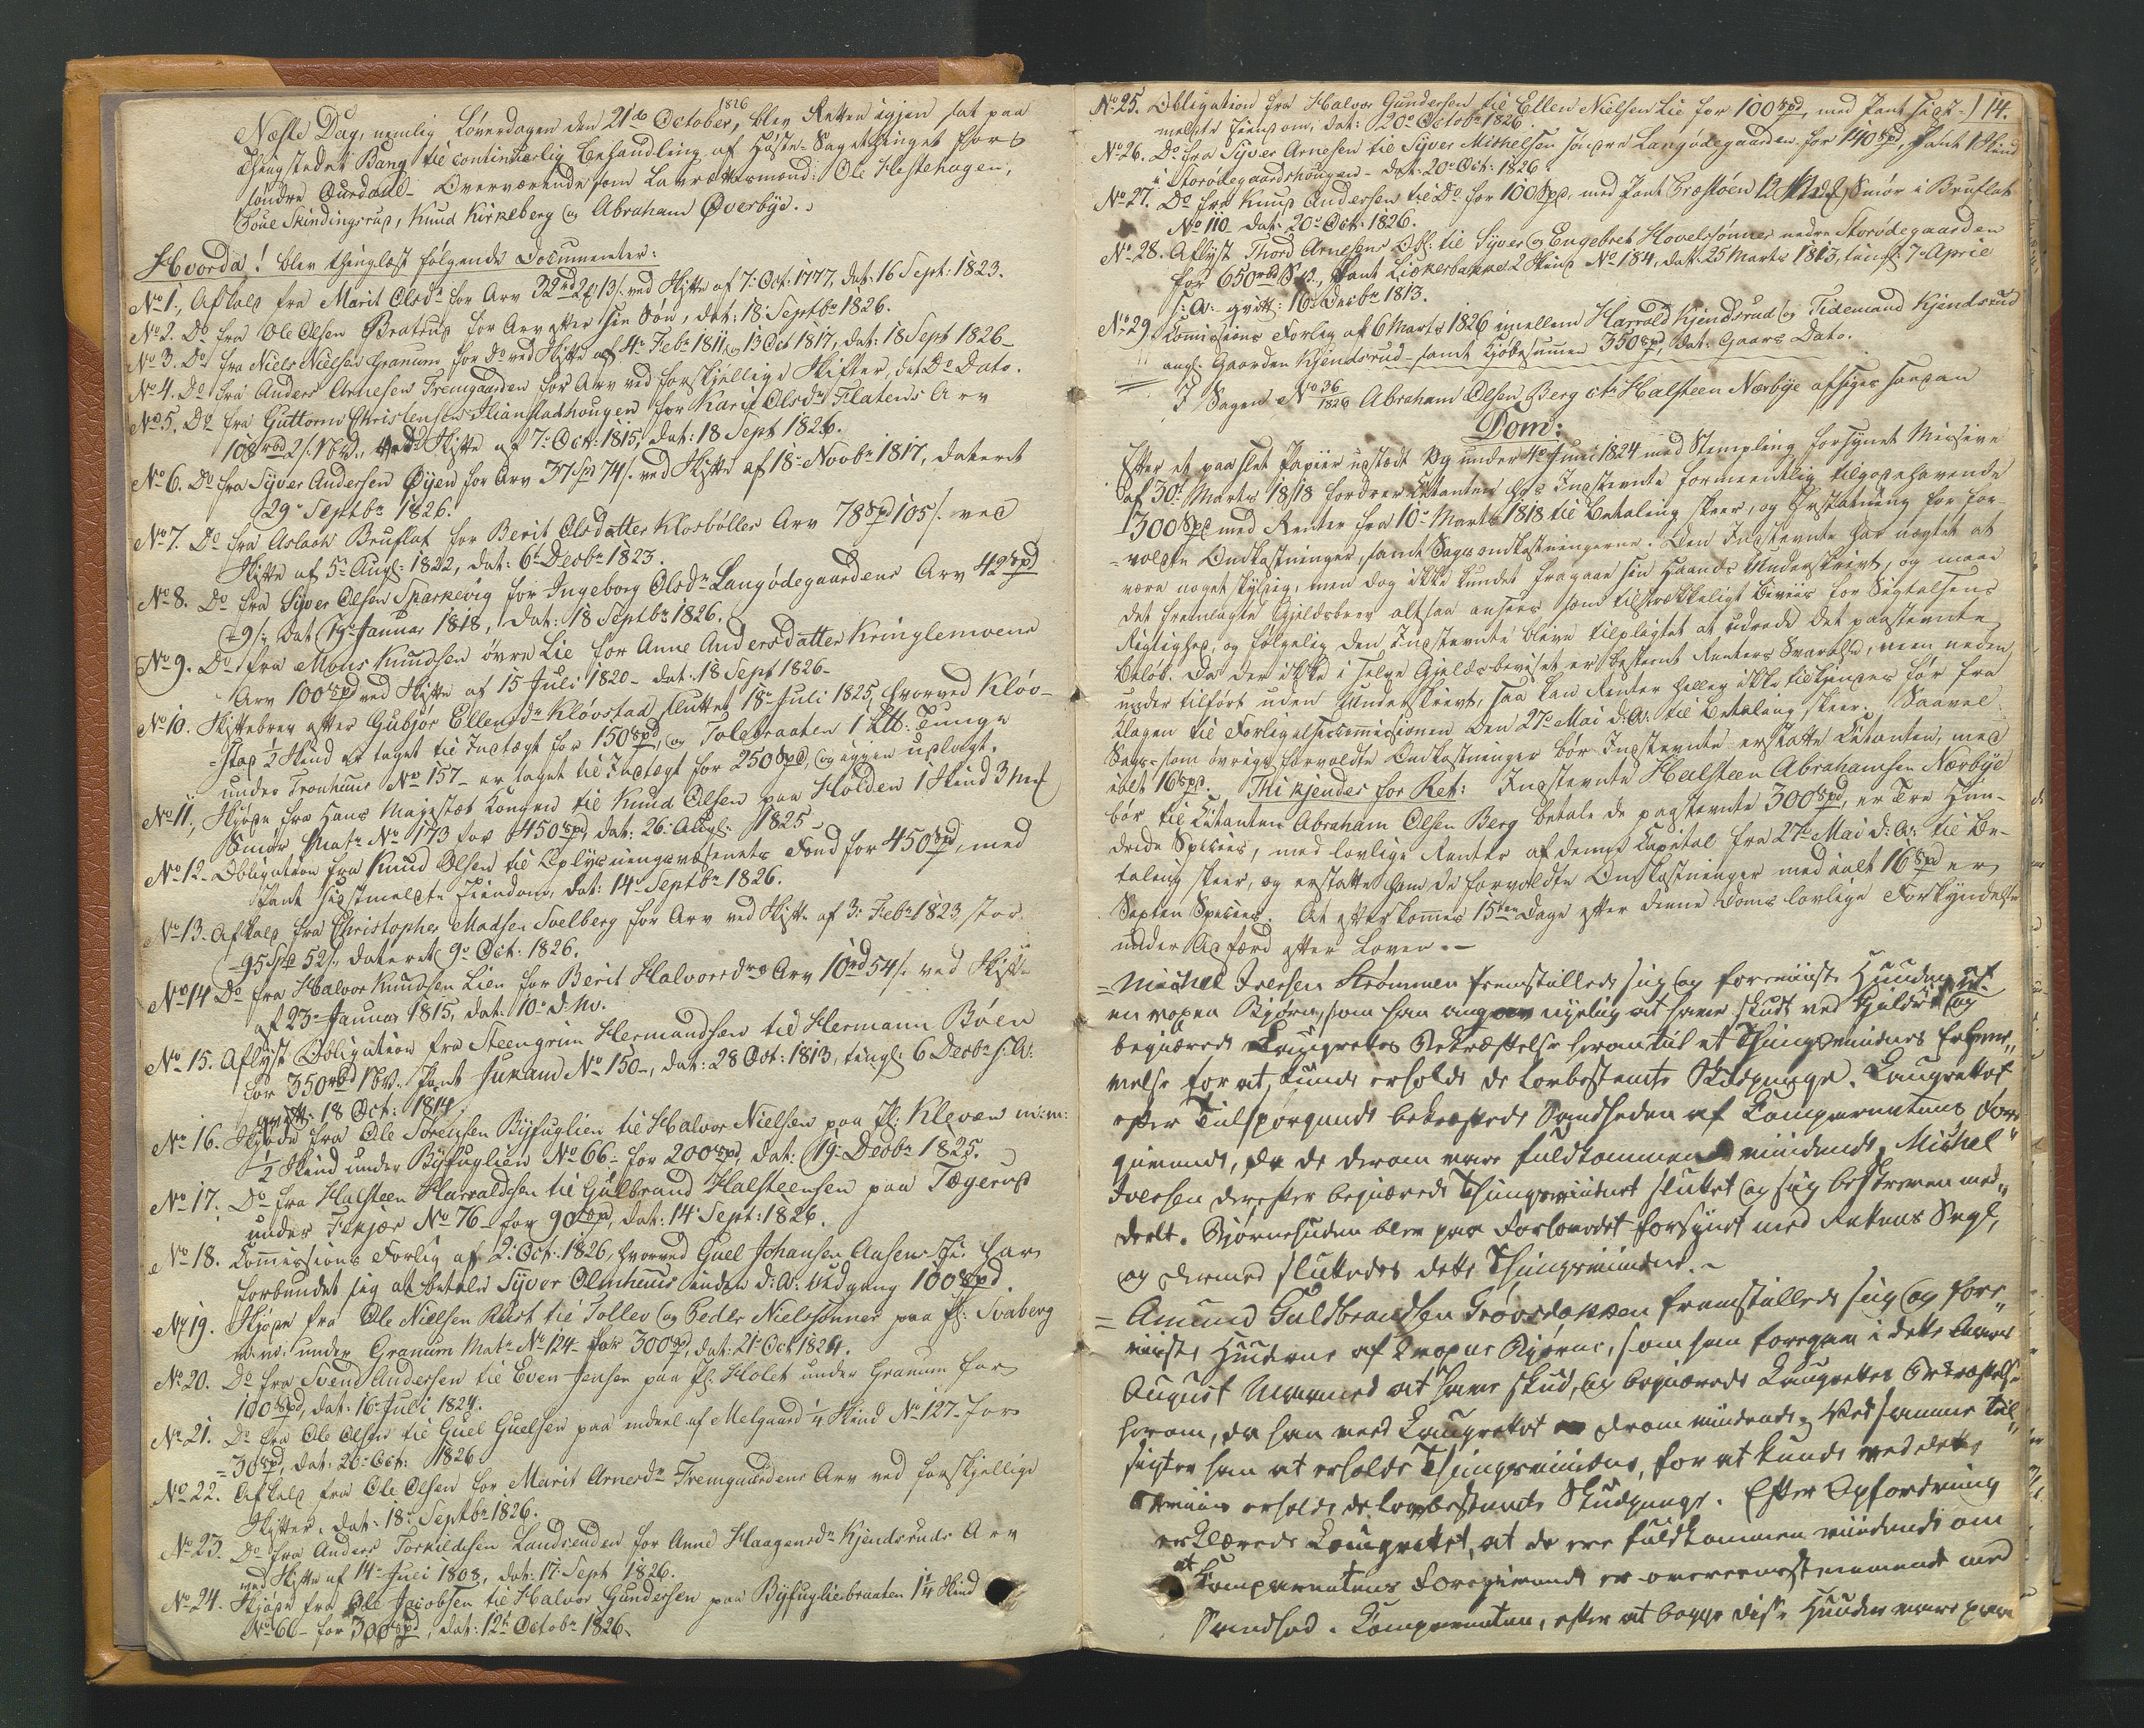 1826
Næste Dag, nemlig Løverdagen den 21de October, blev Retten igjen sat paa
Thingstedet Bang til continuerlig Behandling af Høste-Sagethinget for
søndre Ourdahl - Overværende som Lavrettesmænd: Ole Hestehagen,
Boue Skindingsrud, Knud Kirkeberg og Abraham Øverbye.
Hvorda! blev thinglæst følgende Documenter:
No 1, Afkald fra Marit Olsdr for Arv 32rd 2 13/ ved Skifte af 7: Oct: 1777, dat: 16 Sept: 1823.
No 2. Do fra Ole Olsen Bratrud for Arv efter sin Søn, dat: 18 Septbr 1826.
No 3. Do fra Niels Nielsen Granum for do ved Skifte af 4 Febr 1811, og 13 Oct 1817, dat: 18 Sept 1826 -
No 4. Do fra Anders Arnesen Fremgaarden for Arv ved forskjellige Skifter, dat Do Dato.
No 5. Do fra Guttorm Christensen Skianstadhougen for Kari Olsdr Flatens Arv
108rbd 2/ NV., ved Skifte af 7: Oct: 1815, dat: 18 Sept 1826.
No 6. Do fra Syver Andersen Øyen for Arv 37 Spd 74/. ved Skifte af 18 Novbr 1817, dateret
29 Septbr 1826.
No 7. Do fra Aslach Bruflat for Berit Olsdatter Klosbølles Arv 78 Spd 105/. ved
Skifte af 5 Augs: 1822, dat: 6 Decbr 1823.
No 8. Do fra Syver Olsen Sparkevig for Ingeborg Olsdr Langødegaardens Arv 42 Spd
9/; dat 19 Januar 1818, dat: 18 Septbr 1826.
No 9. Do fra Mons Knudsen øvre Lie for Anne Andersdatter Kringlemoens
Arv 100 Spd ved Skifte af 15 Juli 1820 - dat: 18 Sept 1826 -
No 10. Skiftebrev efter Gubjør Ellensdr Kløvstad sluttet 18 Juli 1825, hvorved Kløv-
stad 1/2 Skind er taget til Indtægt for 150 Spd, og Tolebraaten 1 Lb: Tunge
under Tronhuus No 157 - er taget til Indtægt for 250 Spd, og igjen udlagt.
No 11, Skjøde fra Hans Majestæt Kongen til Knud Olsen paa Holden 1 Skind 3 mk
Smør Matr No 173 for 450 Spd, dat: 26 Augs: 1825
No 12. Obligation fra Knud Olsen til Oplysningsvæsenets Fond for 450 Spd, med
Pant sidstmeldte Eiendom, dat: 14 Septbr 1826.
No 13. Afkald fra Christopher Madsen Soelberg for Arv ved Skifte af 3: Febr 1823, stor
95 Spd 52/, dateret 9 Oct: 1826.
No 14 Do fra Halvor Knudsen Lien for Berit Halvorsdrs Arv 10rd 54/. ved Skifte
af 23 Januar 1815, dat: 10 d: M.
No 15. Aflyst Obligation fra Steengrim Hermandsen til Hermann Bøen
for 350rbd NV. Pant Juvand No 150 -, dat: 28 Oct: 1813, tingl: 6 Decbr s: A:
qvitt: 18 Oct: 1814.
No 16. Skjøde fra Ole Sørensen Byfuglien til Halvor Nielsen paa Pl: Kleven m: m:
1/2 Skind under Byfuglien No 66 - for 200 Spd, dat: 19 Decbr 1825.
No 17. Do fra Halsteen Harraldsen til Gulbrand Halsteensen paa Tægerud
under Fekjær No 76 - for 90 Spd, dat: 14 Sept: 1826.
No 18. Commissions Forlig af 2: Oct: 1826, hvorved Guel Johansen Aasen har
forbundet sig at betale Syver Olmhuus inden d: A: Udgang 100 Spd.
No 19. Skjøde fra Ole Nielsen Rust til Tollev og Peder Nielssønner paa Pl: Svaberg
m: m: under Granum Matr No 124 - for 300 Spd, dat: 21 Oct 1824.
No 20. Do fra Svend Andersen til Even Jensen paa Pl: Holet under Granum for
100 Spd, dat: 16 Juli 1824.
No 21. Do fra Ole Olsen til Guel Guelsen paa endeel af Melgaard 1/4 Skind No 127 - for
30 Spd, dat: 20 Oct: 1826
No 22. Afkald fra Ole Olsen for Marit Arnesdr Fremgaardens Arv ved forskjellige
Skifter, dat: 18 Septbr 1826.
No 23. Do fra Anders Torkildsen Landsenden for Anne Haagensdr Kjendsruds Arv
ved Skifte af 14 Juli 1808, dat: 17 Sept 1826.
No 24. Skjøde fra Ole Jacobsen til Halvor Gundersen paa Byfugliebraaten 1 1/4 Skind
No 66 - for 300 Spd, dat: 12 Octobr 1826.
No 25. Obligation fra Halvor Gundersen til Ellen Nielsen Lie for 100 Spd, med Pant sidst-
114.
meldte Eiendom, dat: 20 Octobr 1826.
No 26. Do fra Syver Arnesen til Syver Michelsen søndre Langødegaarden for 140 Spd, Pant 1 Skind
i Storødegaardshougen - dat: 20 Oct: 1826.
No 27. Do fra Knud Andersen til Do for 100 Spd, med Pant Bræstøen 12 Smør i Bruflat
No 110 dat: 20 Oct: 1826.
No 28. Aflyst Thord Arnesens Obl: til Syver og Engebret Hovelssønner nedre Storødegaarden
for 650rbd Pant Lickerbakke 2 Skind No 184, dat: 25 Marts 1813, tingl: 7 April
s: A: qvitt: 16 Decbr 1813.
No 29. Commissions Forlig af 6 Marts 1826 imellem Harrald Kjendsrud og Tidemand Kjendsrud
angl: Gaarden Kjendsrud - samt Kjøbesummen 350 Spd, dat: Gaars Dato.
I Sagen No 36/1826 Abraham Olsen Berg ctr Halsteen Nærbye afsiges saadan
Dom:
Efter et paa slet Papiir udstædt og under 4 Juni 1824 med Stempling forsynet Missive
af 30 Marts 1818 fordrer Citanten hos Indstevnte formeentlig tilgodehavende
300 Spd med Renter fra 10 Marts 1818 til Betaling skeer, og Erstatning for for-
voldte Omkostninger, samt Sagsomkostningerne. Den Indstevnte har nægtet at
være noget skyldig, men dog ikke kundet fragaae sin Haands Underskrivt, og maae
det fremlagte Gjeldsbrev altsaa ansees som tilstrækkeligt Beviis for Søgtælsens
Rigtighed, og følgelig den Indstevnte blive tilpligtet at udrede det paastevnte
Beløb. Da der ikke i selve Gjeldsbeviset er bestemt Renters Svarelse, men neden
under tilført uden Underskrivt, saa kan Renter heller ikke tilkjendes før fra
Klagen til Forligelsecommissionen den 27 Mai d: A: til Betaling skeer. Saavel
Sags- som øvrige forvoldte Omkostninger bør Indstevnte erstatte Citanten, med
ialt 16 Spd. Thi kjendes for Ret: Indstevnte Halsteen Abrahamsen Nærbye
bør til Citanten Abraham Olsen Berg betale de paastevnte 300 Spd, er Tre Hun-
drede Species, med lovlige Renter af denne Capital fra 27 Mai d: A: til Be-
taling skeer, og erstatte ham de forvoldte Omkostninger med ialt 16 Spd er
Sexten Species. At efterkommes 15ten Dage efter denne Doms lovlige Forkyndelse
under Adfærd efter Loven. -
= Michel Iversen Strømmen fremstillede sig og foreviiste Huuden af
en voxen Bjørn, som han angav nyelig at have skudt ved Gildre og
begjærede Laugrettes Bekræftelse herom til et Thingsvidnes Erhver-
velse for at kunde erholde de lovbestemte Skudpenge. Laugrettet
efter Tilspørgende bekræftede Sandheden af Comparentens Fore-
givende, da de derom vare fuldkommen vidende. Michel
Iversen derefter begjærede Thingsvidnet sluttet og sig beskreven med-
deelt. Bjørnehuden blev paa Forlovedet forsynet med Rettens Segl,
og dermed sluttedes dette Thingsvidne. -
= Amund Guldbrandsen Grøvsdokken fremstillede sig og fore-
viiste Huudene af voxne Bjørne, som han foregav i dette Aars
August Maaned at have skud, og begjærede Laugrettes Bekræftelse
herom, da han veed Laugrettet derom vidende. Ved samme Til-
sigter han at erholde Thingsvidne, for at kunde ved dets
Beviis erholde de lovbestemte Skudpenge. Efter Opfordring
erklærede Laugrettet, at de ere fuldkommen vidende om
at Comparentens Foregivende er overeensstemmende med
Sandhed. Comparenten, efter at begge disse Huuder vare paa